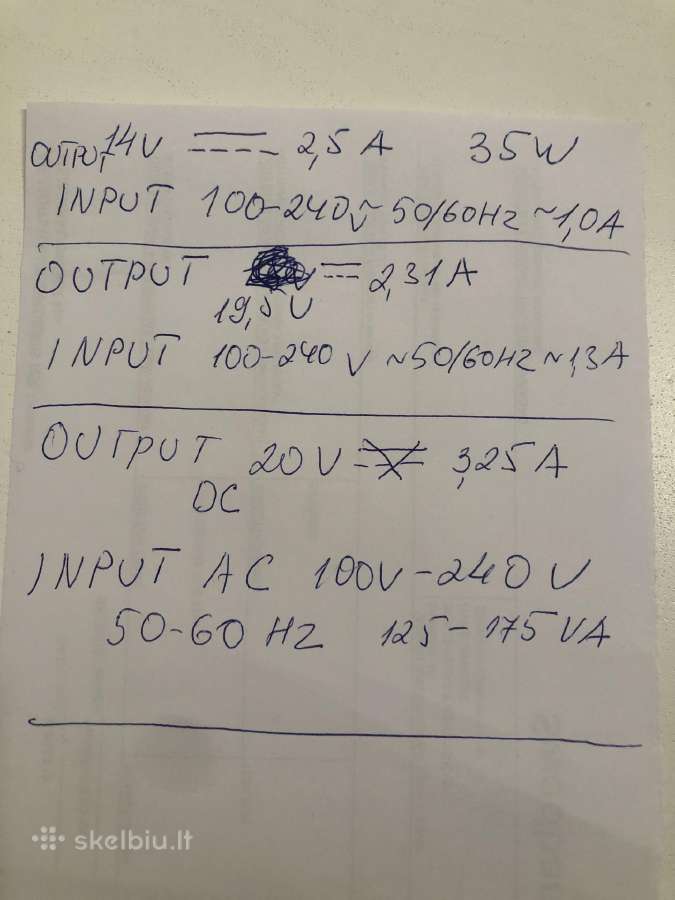 OUTPUT 14V ⎓ 2,5 A 35W
INPUT 100-240V~50/60Hz ~1,0A
OUTPUT ⎓ 2,31A
19,5V
INPUT 100-240 V ~50/60HZ~1,3A
OUTPUT 20V 3,25A
DC
INPUT AC 100V-240V
50-60 HZ 125-175 VA
skelbiu.lt